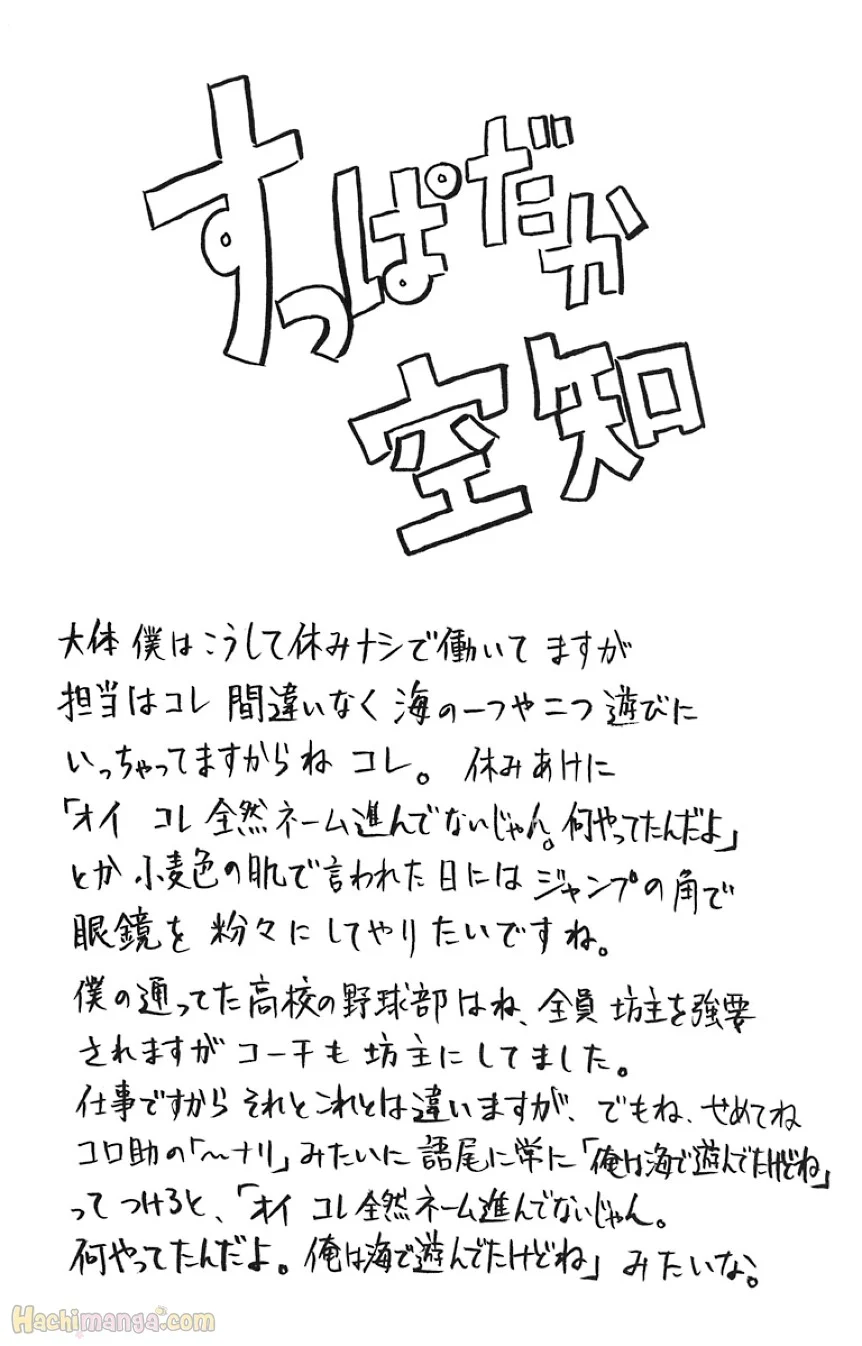 すっぱだか
空知
大体 僕はこうして休みナシで働いて ますが
担当はコレ 間違いなく 海の一つや二つ 遊びに
いっちゃってますからね コレ。 休みあけに
「オイ コレ 全然ネーム進んでないじゃん。何やってたんだよ」
とか 小麦色の肌で言われた日には ジャンプの角で
眼鏡を 粉々にしてやりたいですね。
僕の通ってた高校の野球部はね、全員 坊主を強要
されますが コーチも 坊主にしてました。
仕事ですから それとこれとは違いますが、でもね、せめてね
コロ助の「〜ナリ」みたいに 語尾に常に「俺は海で遊んでたけどね」
って つけろと、「オイ コレ全然ネーム進んでないじゃん。
何やってたんだよ。俺は海で遊んでたけどね」 みたいな。
Hachimanga.com